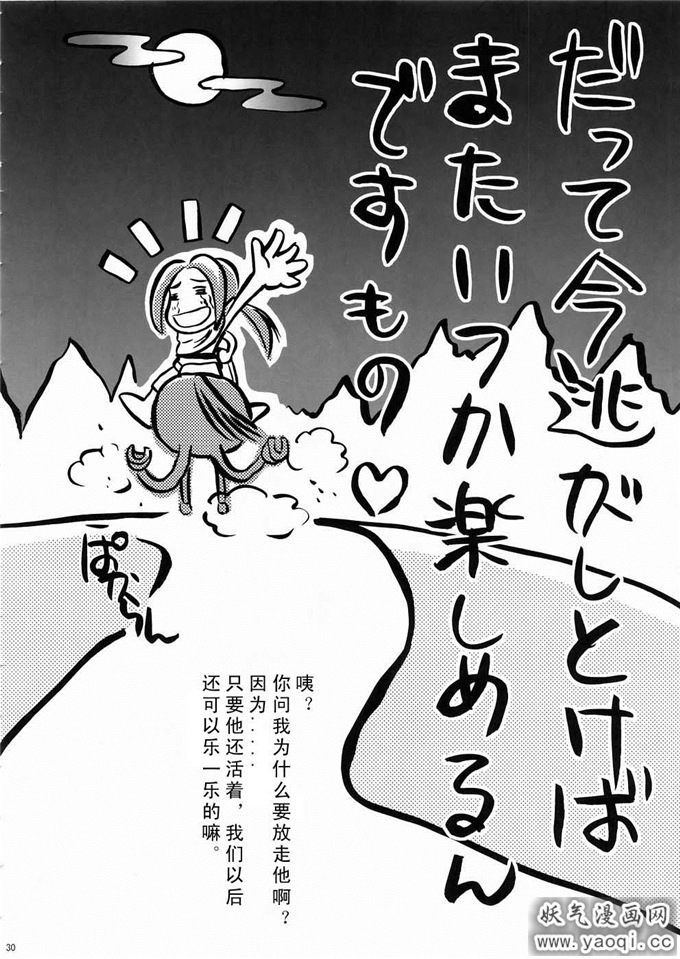 だって今逃がしとけば
またいつか楽しめるん
ですもの♡
ぱからっ
らん
咦？
你问我为什么要放走他啊？
因为．．．．
只要他还活着，我们以后
还可以乐一乐的嘛。
30
妖气漫画网
www.yaoqi.cc